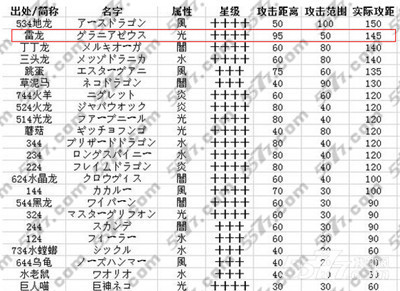 出处/简称 名字 属性 星级 攻击距离 攻击范围 实际攻距
534地龙 アースドラゴン 風 ++++ 50 100 150
雷龙 グラニアゼウス 光 ++++ 95 50 145
丁丁龙 メルキオーガ 闇 ++++ 60 80 140
三头龙 メッツドラニカ 水 ++++ 60 80 140
跳蛋 エスターグアニ 風 ++++ 75 60 135
草泥马 ネコドラゴン 闇 ++++ 40 90 130
744火羊 ニグレット 炎 ++++ 40 80 120
524火龙 ジャバウオック 炎 ++++ 40 80 120
514光龙 ファーブニール 光 ++++ 40 80 120
蘑菇 ギッチョフンゴ 光 ++++ 40 80 120
344 ブリザードドラゴン 水 ++++ 40 80 120
234 ロングスパイニー 水 ++++ 40 80 120
224 フレイムドラゴン 炎 ++++ 40 80 120
624水晶龙 クロウヴィス 闇 ++++ 60 40 100
144 カカルー 風 ++++ 70 30 100
544黑龙 ワイバーン 闇 ++++ 60 30 90
324 マスターグリフォン 光 ++++ 60 30 90
244 スカンデ 闇 ++++ 60 30 90
124 フィーラー 水 ++++ 60 30 90
734水螳螂 シックル 水 ++++ 40 30
644乌龟 ノーズハンマー 風 ++++ 40 30
水老鼠 ワオリオ 水 ++++ 40 30
巨人喵 巨神ネコ 光 ++++ 30 30 60